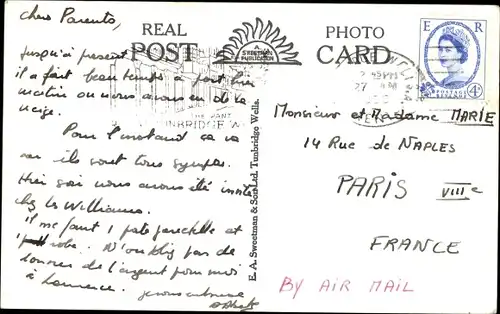 chers Parents,
jusqu'à présent
il a fait beau temps à part hier
matin ou nous avons eu de la
neige.
Pour l'instant ça va
car ils sont tous sympas.
Hier soir nous avons été invités
chez les Williams.
Il me faut 1 pate gamelle et
robe. N'oubliez pas de
donner de l'argent pour moi
à Laurence. je vous embrasse
REAL
POST
A SWEETMAN PUBLICATION
PHOTO
CARD
THE PANT
TUNBRIDGE WELLS
E. A. Sweetman & Son Ltd. Tunbridge Wells.
E R
POSTAGE REVENUE
4D
27
Monsieur et Madame MARIE
14 Rue de NAPLES
PARIS VIIIe
FRANCE
BY AIR MAIL